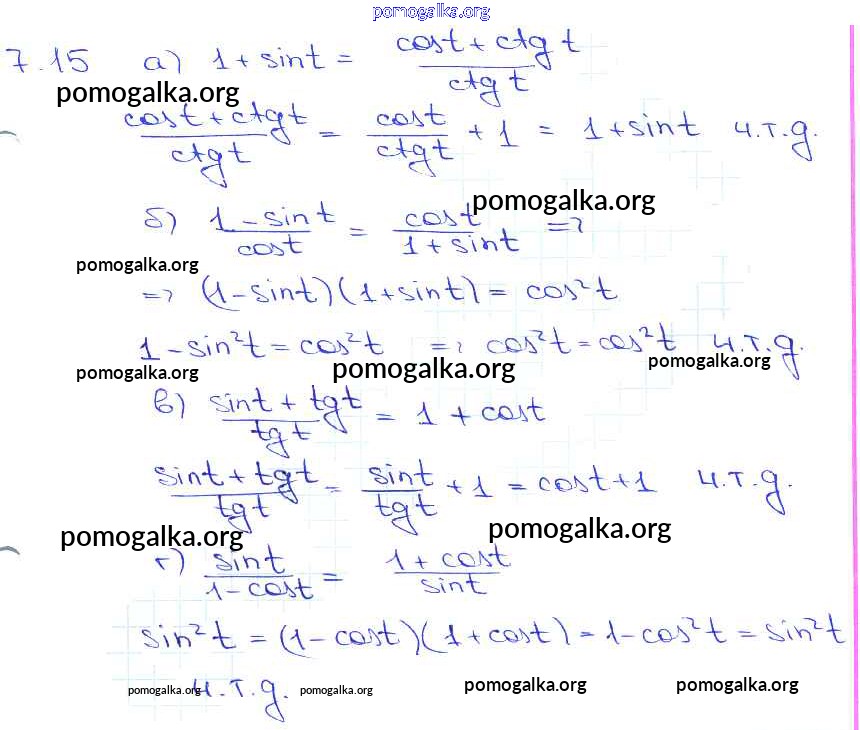 pomogalka.org
7.15 а) 1 + sin t = (cos t + ctg t)/(ctg t)
pomogalka.org
(cos t + ctg t)/(ctg t) = (cos t)/(ctg t) + 1 = 1 + sin t ч.т.д.
pomogalka.org
б) (1 - sin t)/(cos t) = (cos t)/(1 + sin t) =>
pomogalka.org
=> (1 - sin t)(1 + sin t) = cos²t
1 - sin²t = cos²t => cos²t = cos²t ч.т.д.
pomogalka.org pomogalka.org pomogalka.org
в) (sin t + tg t)/(tg t) = 1 + cos t
(sin t + tg t)/(tg t) = (sin t)/(tg t) + 1 = cos t + 1 ч.т.д.
pomogalka.org pomogalka.org
г) (sin t)/(1 - cos t) = (1 + cos t)/(sin t)
sin²t = (1 - cos t)(1 + cos t) = 1 - cos²t = sin²t
ч.т.д.
pomogalka.org pomogalka.org pomogalka.org pomogalka.org